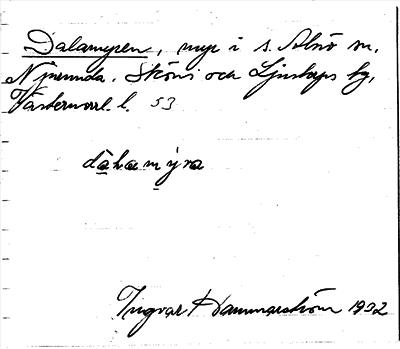 Dalamyren, myr i s. Alnö m.
Njurunda. Sköns och Ljustorps tg,
Västernorrl. l. 53
dahamýra
Ingvar Hammarström 1932